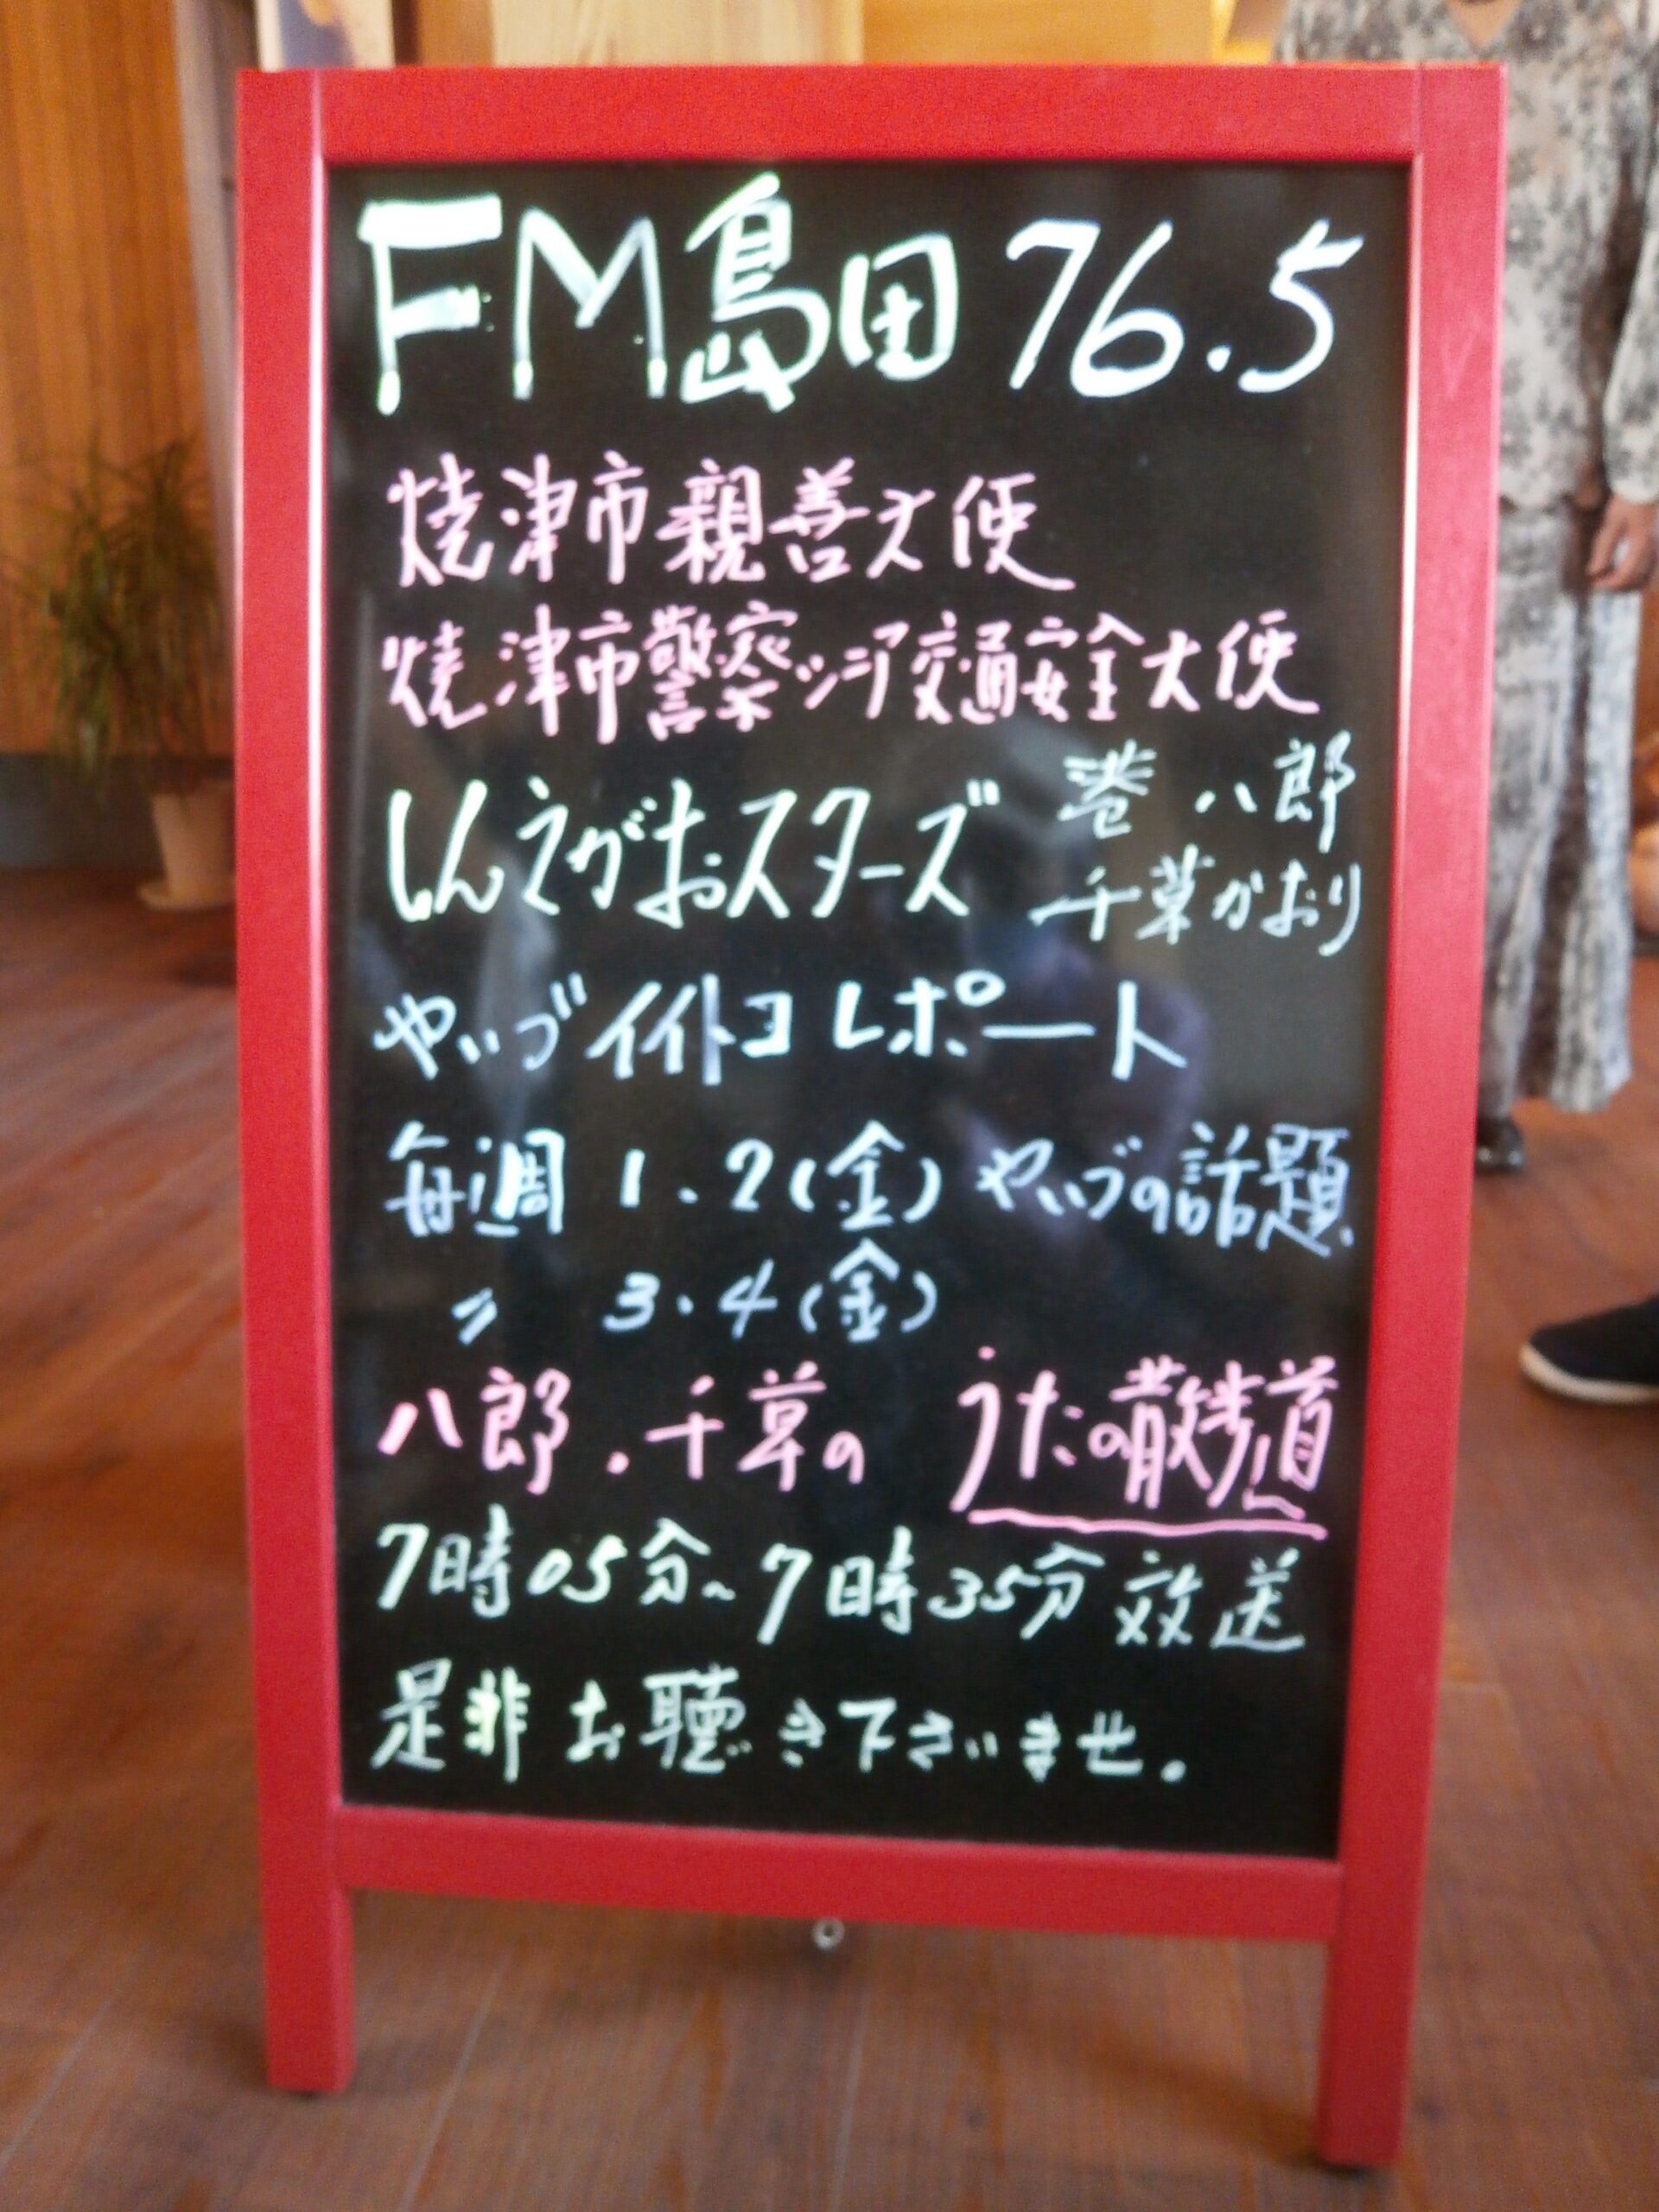 FM島田 76.5
焼津市親善大使
焼津市警察シニア交通安全大使
しんえがおスターズ 港 八郎
千草かおり
やいづイイトコレポート
毎週 1.2(金) やいづの話題
〃 3.4(金)
八郎.千草の うたの散歩道
7時05分~7時35分放送
是非お聴き下さいませ。